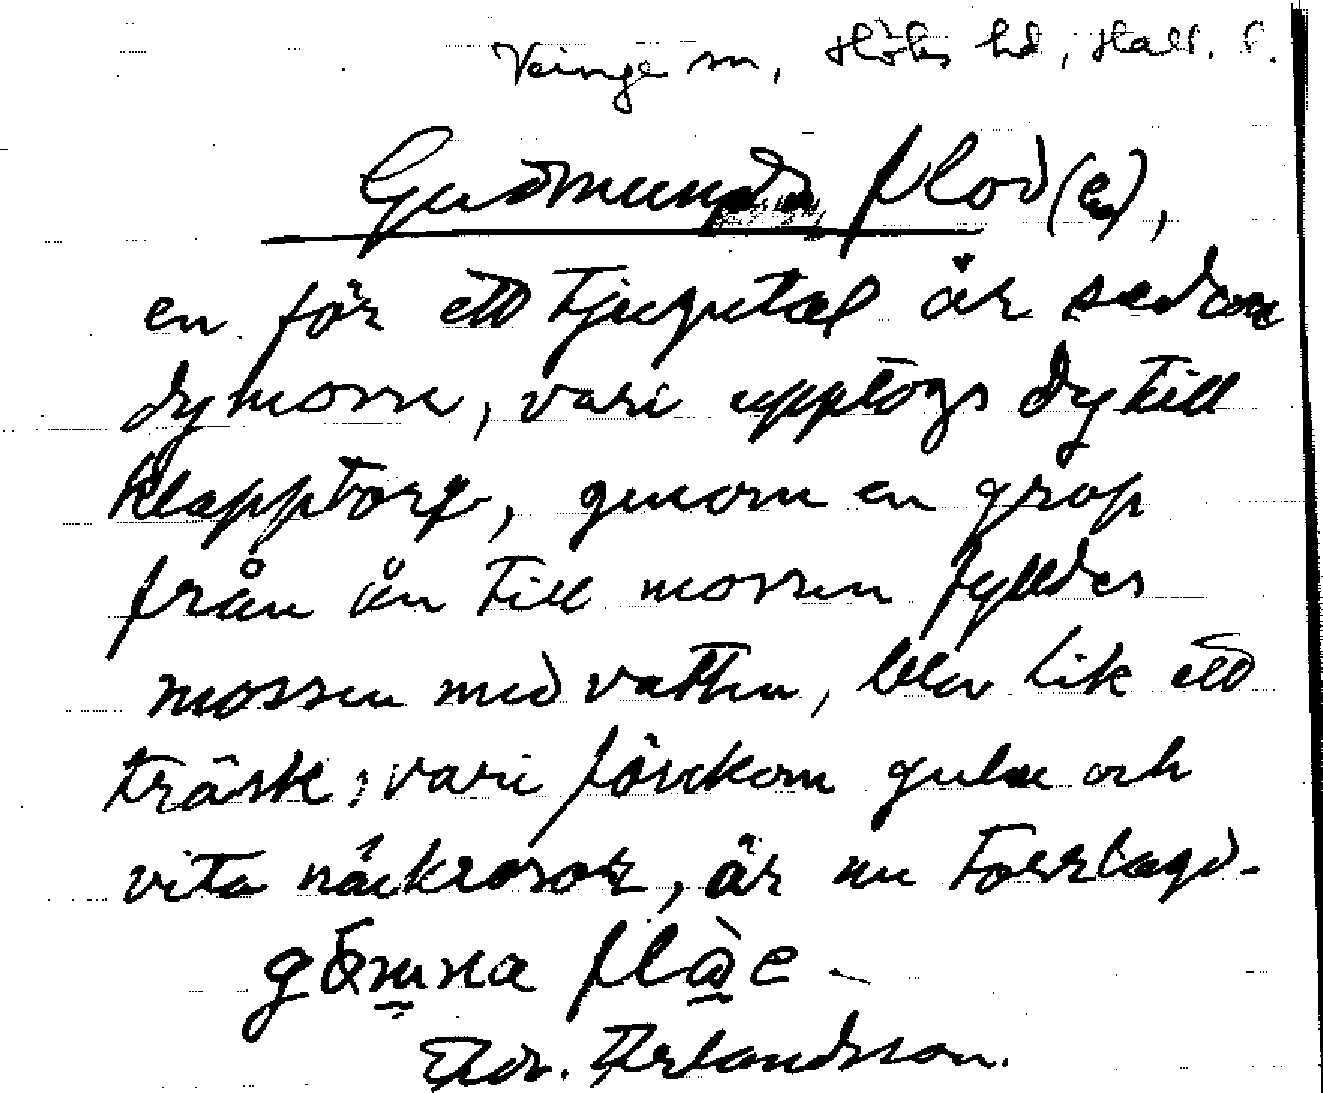 Veinge sn, Höks hd, Hall. l.
Gudmunds flod(en),
en för ett tjugutal år sedan
dymosse, vari upptogs dy till
klapptorf, genom en grop
från ån till mossen fylldes
mossen med vatten, blev lik ett
träsk, vari förekom gula och
vita näckrosor, är nu torrlagd.
flåe
Edv. Erlandsson.